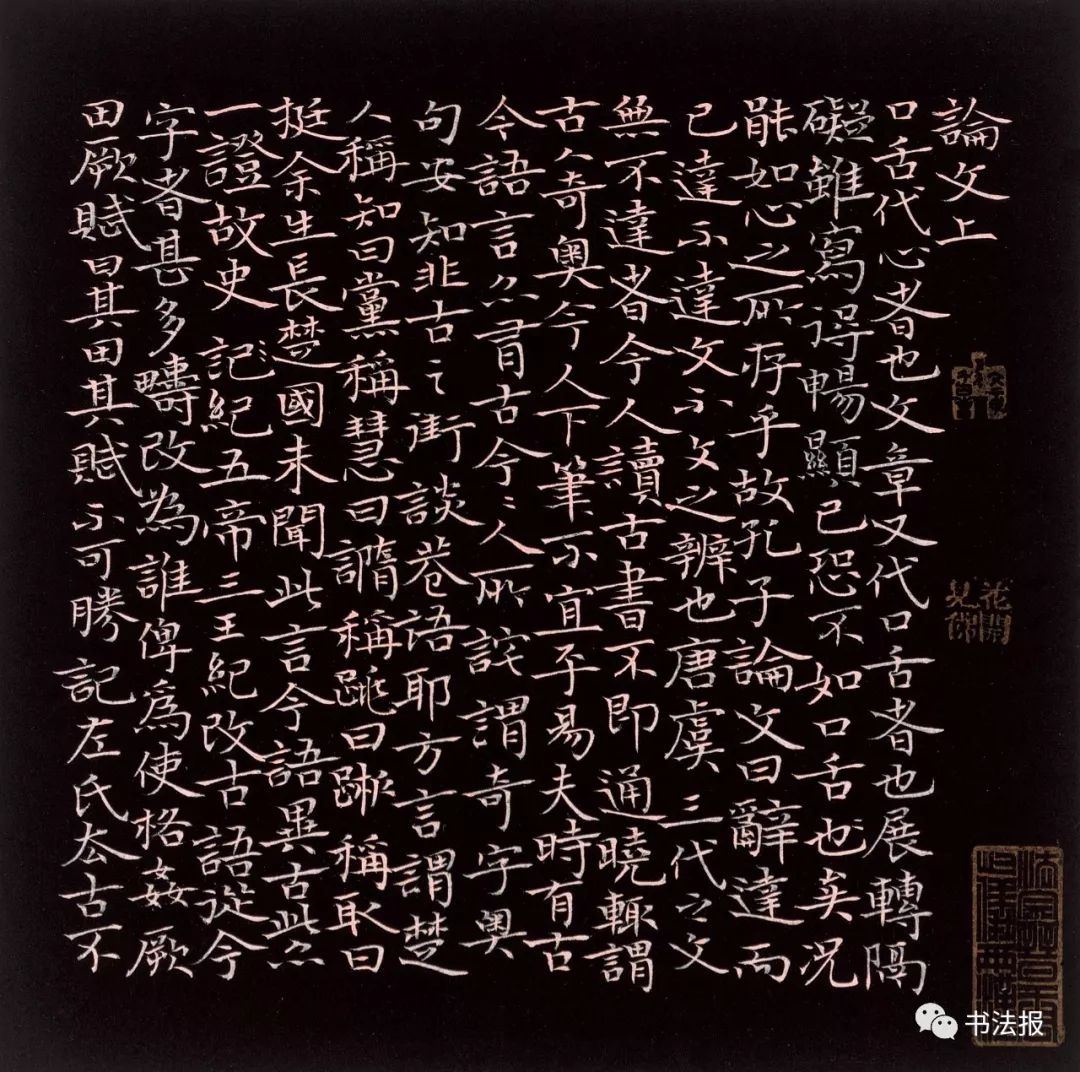 論文上
口舌代心者也文章又代口舌者也展轉隔
礙雖寫得暢顯已恐不如口舌也矣況
能如心之所存乎故孔子論文曰辭達而
已達不達文不文之辨也唐虞三代之文
無不達者今人讀古書不即通曉輒謂
古人奇奧今人下筆不宜平易夫時有古
今語言亦有古今〻人所詫謂奇字奧
句安知非古之街談巷語耶方言謂楚
人稱知曰黨稱慧曰䜏稱跳曰稱取曰
挺余生長楚國未聞此言今語異古此亦
一證故史記紀五帝三王紀改古語從今
字者甚多疇改為誰俾為使格姦厥
田厥賦曰其田其賦不可勝記左氏去古不
花開見佛
书法报